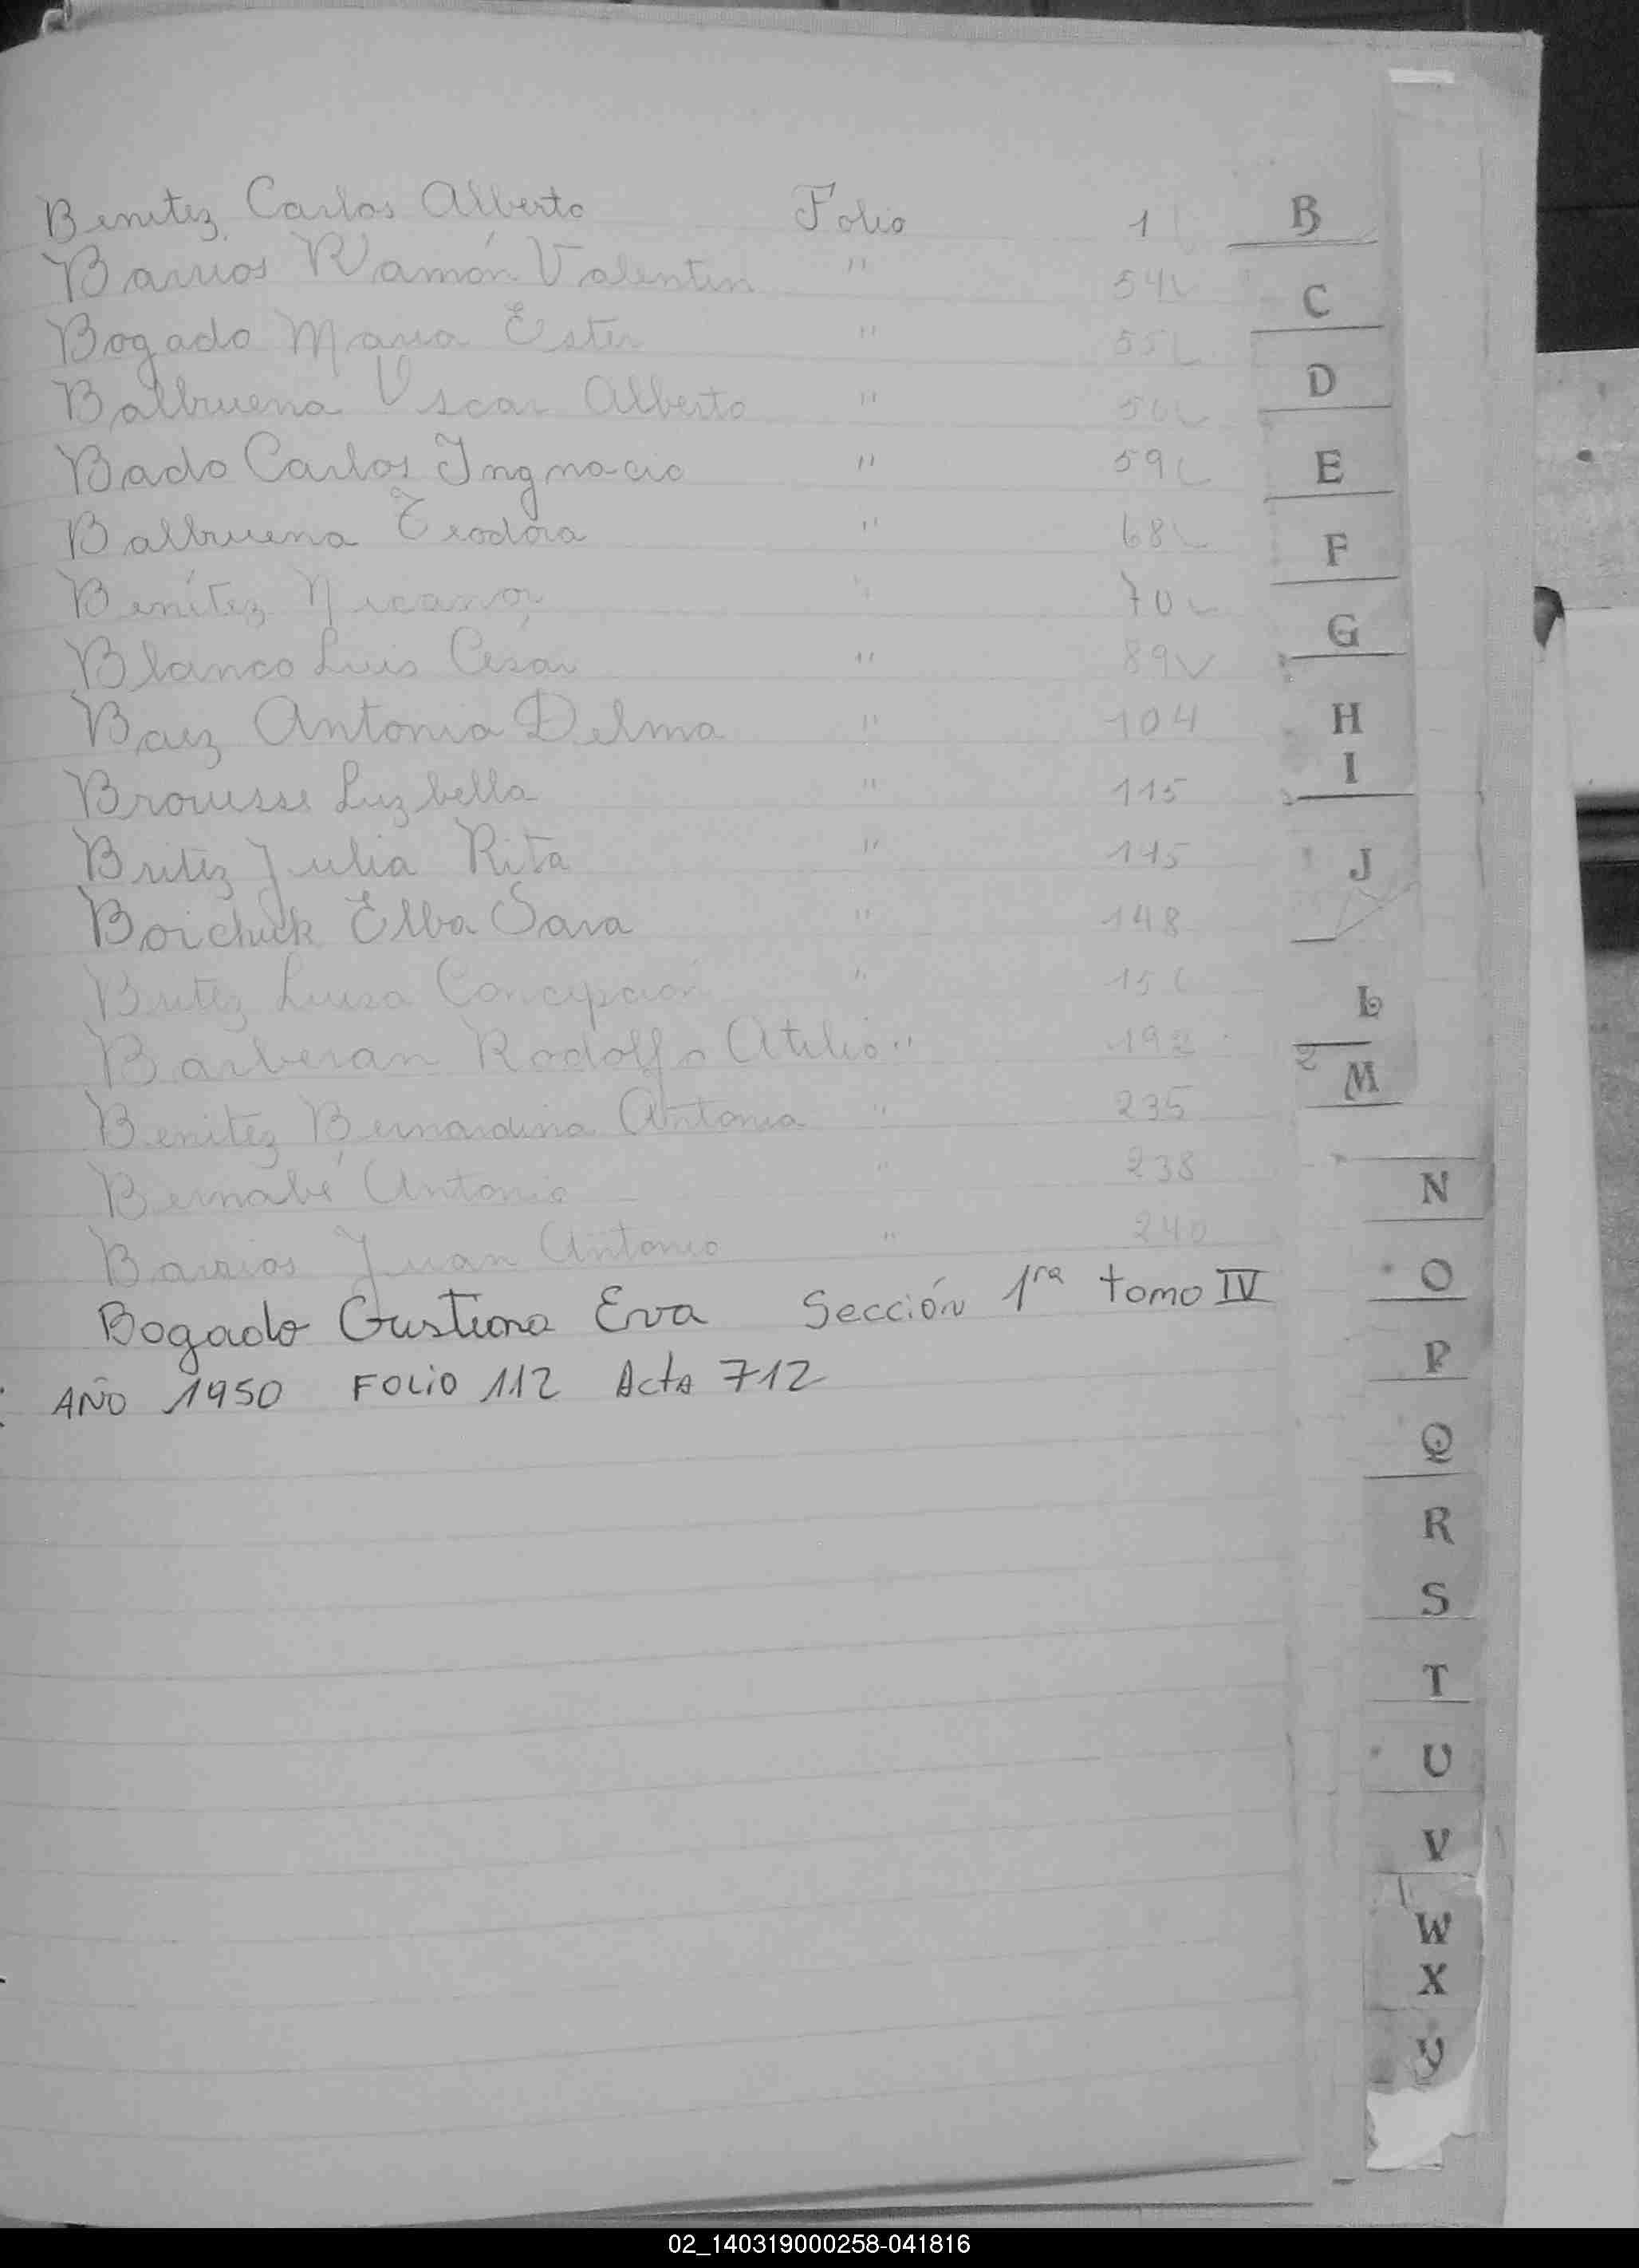 Benitez Carlos Alberto Folio 1 B
Barrios Ramón Valentin " 54
Bogado Maria Ester " 55
Balbuena Oscar Alberto " 56
Bado Carlos Ingnacio " 59
Balbuena Teodora " 68
Benítez Nicanor " 70
Blanco Luis César " 89
Baez Antonia Delma " 104
Brousse Luzbella " 115
Britez Julia Rita " 145
Boichuk Elba Sara " 148
Britez Luisa Concepción " 15
Barberan Rodolfo Atilio " 192
Benitez Bernardina Antonia " 235
Bernabé Antonio " 238
Barrios Juan Antonio " 240
Bogado Cristina Eva Sección 1ra tomo IV
AÑO 1950 FOLIO 112 Acta 712
C
D
E
F
G
H
I
J
L
M
N
O
P
Q
R
S
T
U
V
W
X
Y
02_140319000258-041816